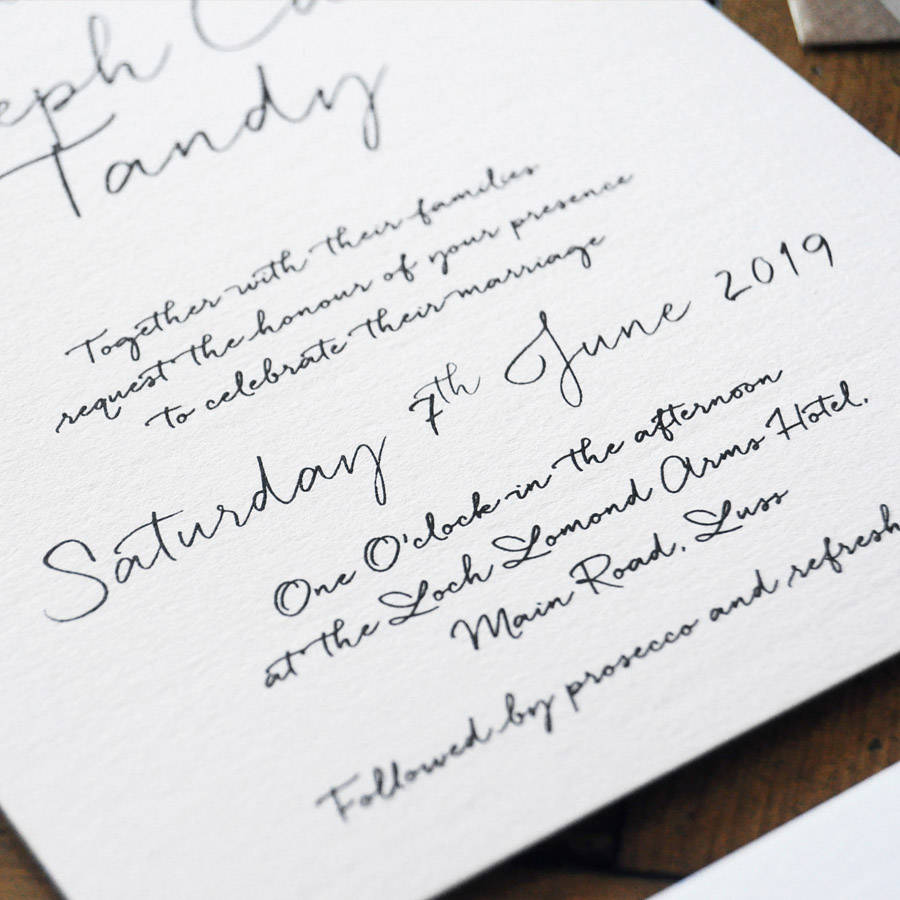 Tandy
Together with their families
request the honour of your presence
to celebrate their marriage
Saturday 7th June 2019
One O'clock in the afternoon
at the Loch Lomond Arms Hotel,
Main Road, Luss
Followed by prosecco and